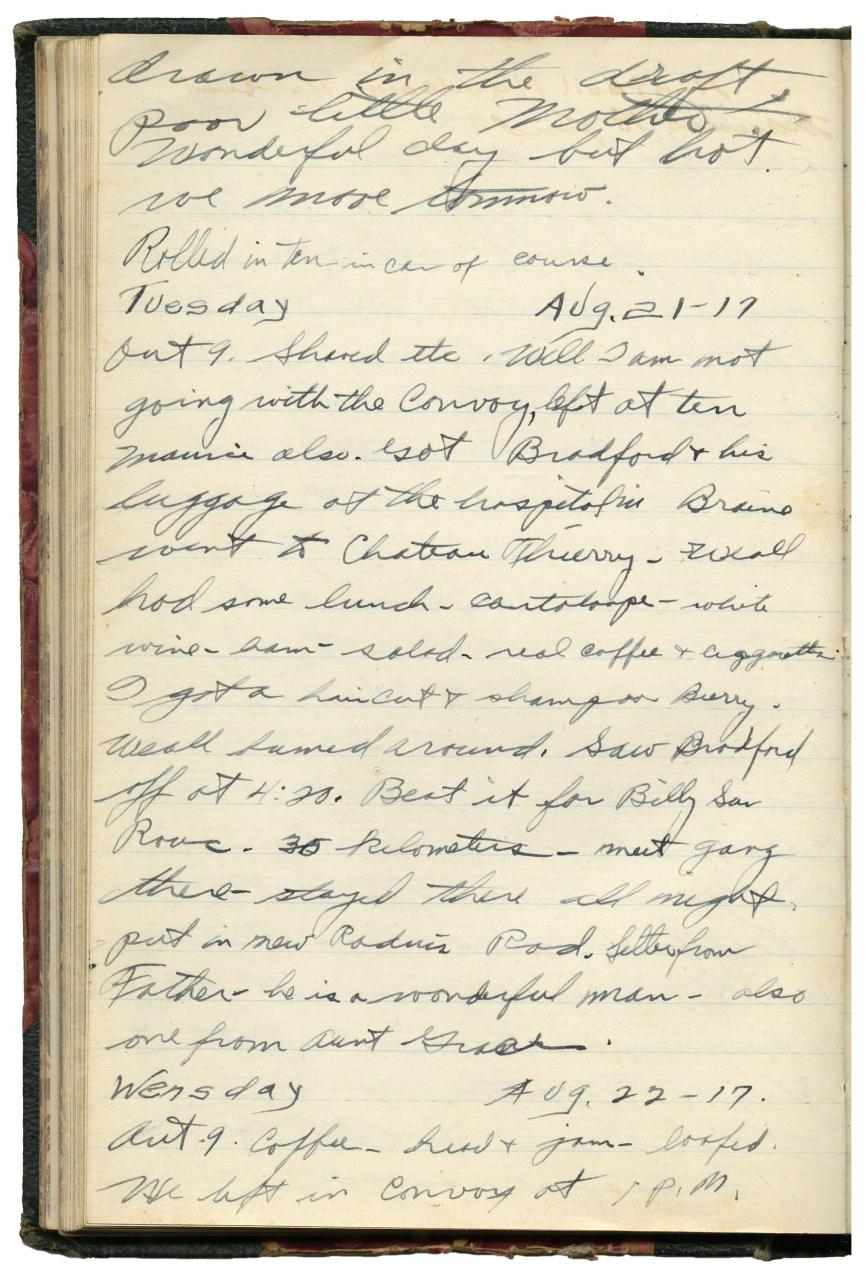 drawn in the draft,
poor little Mother
Wonderful day but hot
we move tomorrow.
Rolled in ten - in car of course.
Tuesday Aug. 21-17
Out 9. Shaved etc. Well I am not
going with the Convoy, left at ten
Maurice also. Got Bradford & his
luggage at the hospital in Braine
went to Chateau Thierry - We all
had some lunch - cantaloupe - white
wine - ham - salad - real coffee &
I got a haircut & shampoo
We all bumed around. Saw Bradford
off at 4:20. Beat it for Billy Sur
30 kilometers - meet gang
there - stayed there all night.
put in new Radius Rod. Letter from
Father - he is a wonderful man - also
one from Aunt Grace.
Wensday Aug. 22-17.
Out 9. Coffee - bread & jam - loafed.
We left in Convoy at 1 P.M.